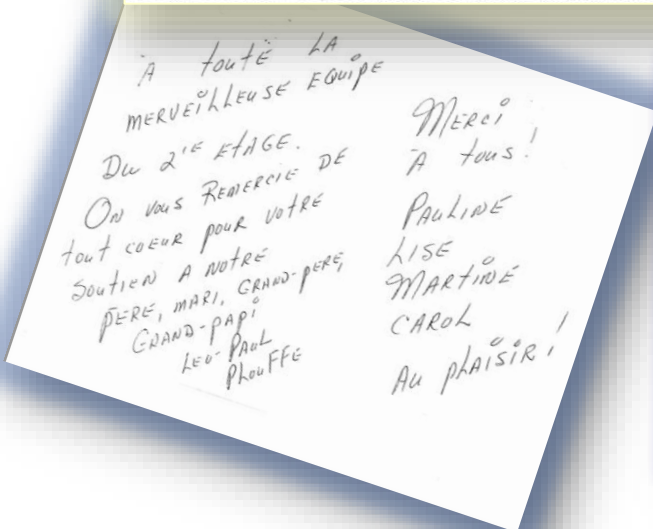 À toutE LA
MERVEiLLEUSE EQUiPE
Du 2iE EtAGE.
On vous REMERCIE DE
tout coeur pour votre
Soutien A NOTRE
PERE, MARI, GRAND-PERE,
GRAND-PAPi
LEO-PAUL
PLOUFFE
MERCi
À tous!
PAULINE
LISE
MARTINE
CAROL
Au pLAiSiR!